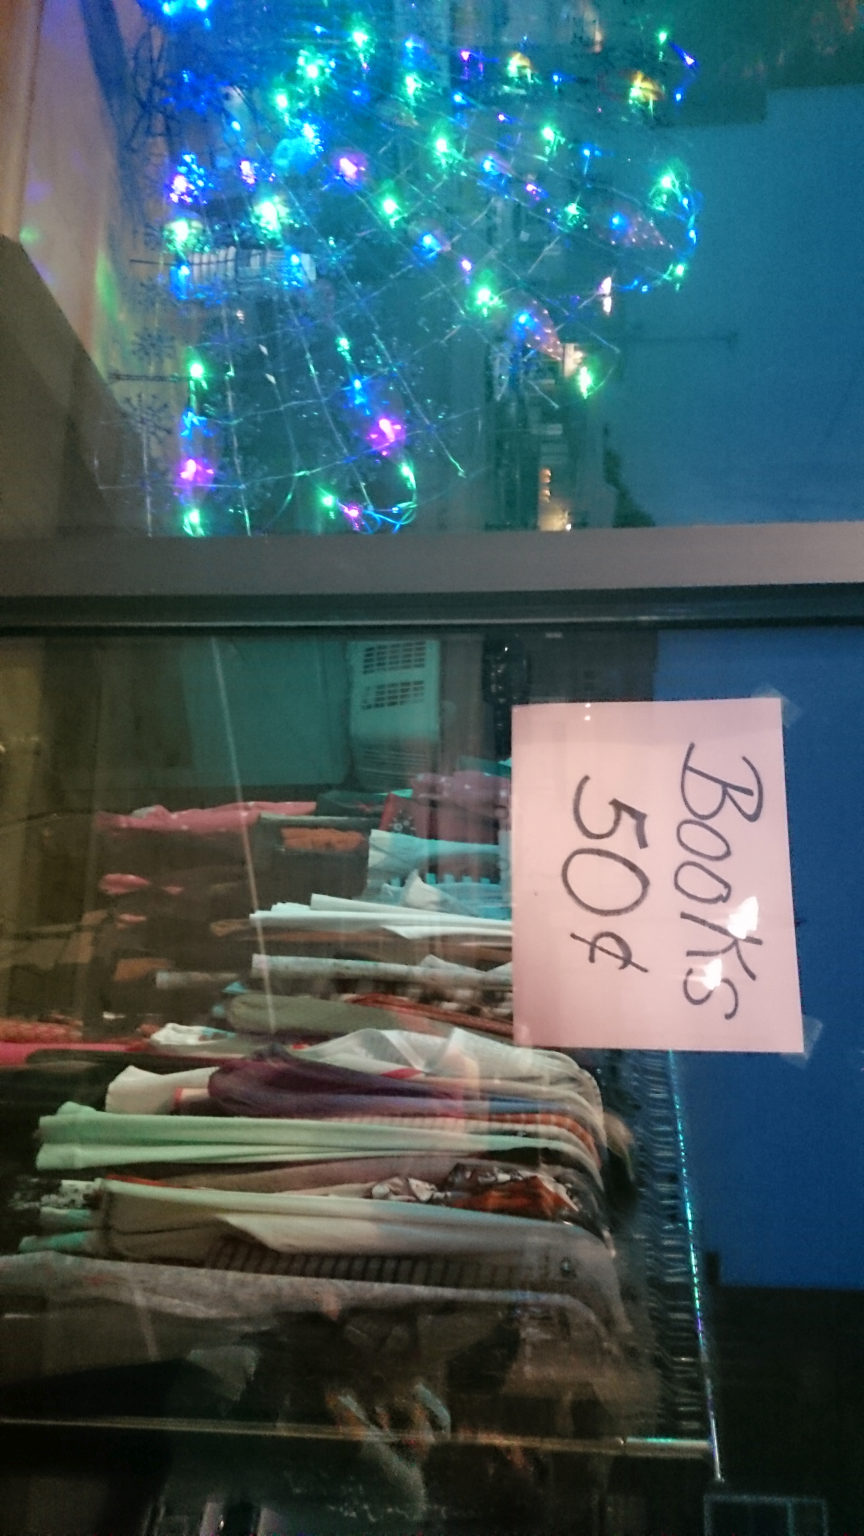 Books
50¢